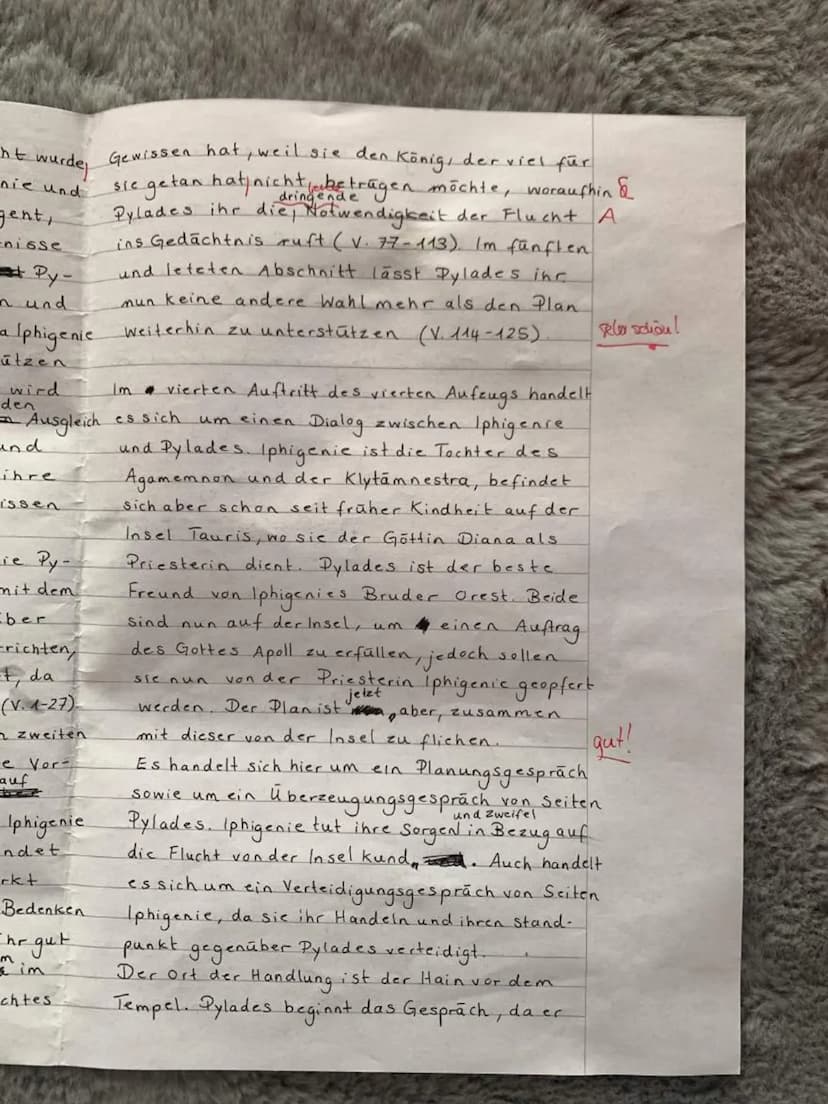 ht wurde, Gewissen hat, weil sie den König, der viel für
nie und sie getan hat, nicht betrügen möchte, woraufhin §
dringende
gent, Pylades ihr die Notwendigkeit der Flucht A
nisse ins Gedächtnis ruft (V. 77-113). Im fünften
Py- und letzten Abschnitt lässt Pylades ihr
n und nun keine andere Wahl mehr als den Plan
a Iphigenie weiterhin zu unterstützen (V. 114-125). sehr schön!
ützen
wird Im vierten Auftritt des vierten Aufzugs handelt
den
Ausgleich es sich um einen Dialog zwischen Iphigenie
und und Pylades. Iphigenie ist die Tochter des
ihre Agamemnon und der Klytämnestra, befindet
issen sich aber schon seit früher Kindheit auf der
Insel Tauris, wo sie der Göttin Diana als
ie Py- Priesterin dient. Pylades ist der beste
mit dem Freund von Iphigenies Bruder Orest. Beide
über sind nun auf der Insel, um einen Auftrag
richten, des Gottes Apoll zu erfüllen, jedoch sollen
t, da sie nun von der Priesterin Iphigenie geopfert
jetzt
(V. 1-27). werden. Der Plan ist, aber, zusammen
n zweiten mit dieser von der Insel zu fliehen. gut!
e Vor- Es handelt sich hier um ein Planungsgespräch
auf
sowie um ein Überzeugungsgespräch von Seiten
und Zweifel
Iphigenie Pylades. Iphigenie tut ihre Sorgen in Bezug auf
ndet die Flucht von der Insel kund. Auch handelt
rkt es sich um ein Verteidigungsgespräch von Seiten
Bedenken Iphigenie, da sie ihr Handeln und ihren Stand-
ihr gut punkt gegenüber Pylades verteidigt.
m
im Der Ort der Handlung ist der Hain vor dem
chtes Tempel. Pylades beginnt das Gespräch, da er